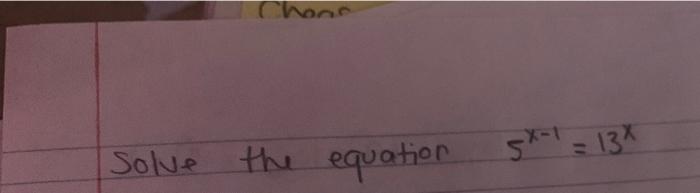 Solve the equation 5^{x-1} = 13^x